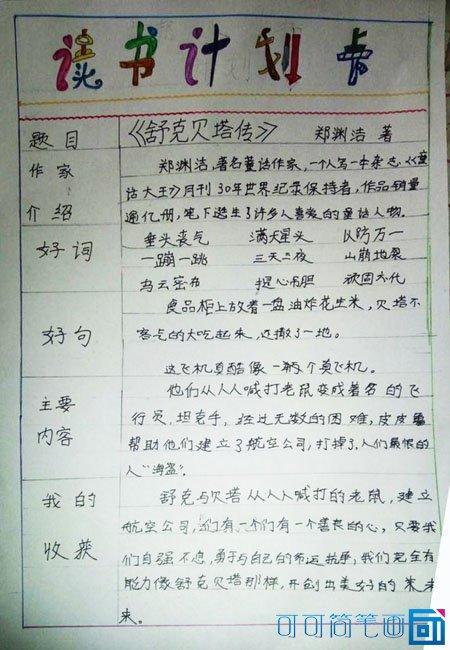 读书计划卡
题目 《舒克贝塔传》 郑渊洁 著
作家介绍
郑渊洁,著名童话作家,一个人写一本杂志《童
话大王》月刊30年世界纪录保持者,作品销量
逾亿册,笔下诞生了许多人喜爱的童话人物。
好词
垂头丧气 满天星头 以防万一
一蹦一跳 三天三夜 山崩地裂
乌云密布 提心吊胆 顽固不化
好句
食品柜上放着一盘油炸花生米,贝塔不
客气的大吃起来,还撒了一地。
这飞机真酷像一瓣个莫飞机。
主要内容
他们从人人喊打老鼠变成著名的飞
行员,坦克手,经过无数的困难,皮皮鲁
帮助他们建立了航空公司,打掉了,人们最恨的
人"海盗"。
我的收获
舒克与贝塔从人人喊打的老鼠,建立
航空公司,们有一个们有一个善良的心,只要我
们自强不息,勇于与自己的命运抗争,我们完全有
能力像舒克贝塔那样,开创出美好的未
来。
可可简笔画